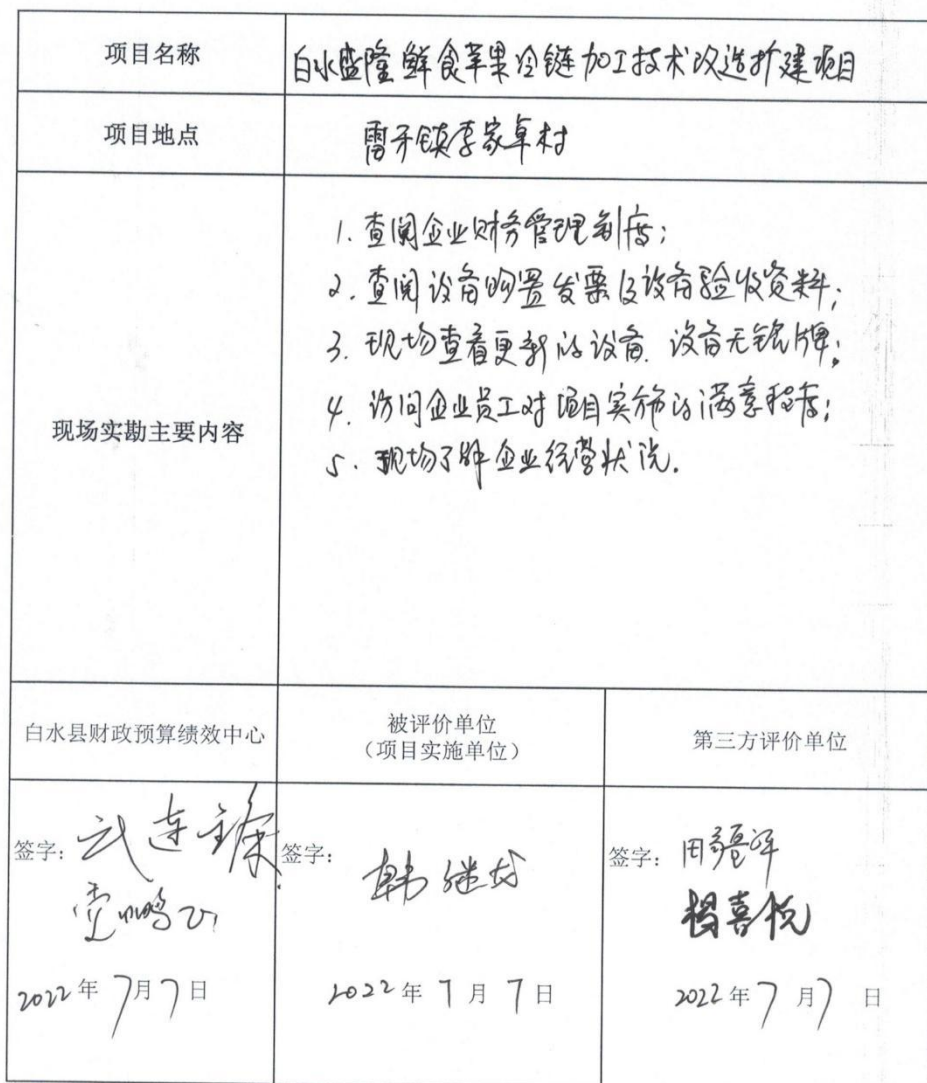 项目名称
白水盛隆鲜食苹果冷链加工技术改造扩建项目
项目地点
雷牙镇李家卓村
现场实勘主要内容
1. 查阅企业财务管理制度;
2. 查阅设备购置发票及设备验收资料;
3. 现场查看更新的设备. 设备无铭牌;
4. 访问企业员工对项目实施的满意程度;
5. 现场了解企业经营状况.
白水县财政预算绩效中心
被评价单位
(项目实施单位)
第三方评价单位
签字:
签字: 韩继
签字: 田
杨喜悦
2022年 7月7日
2022年 7月 7日
2022年 7月7 日